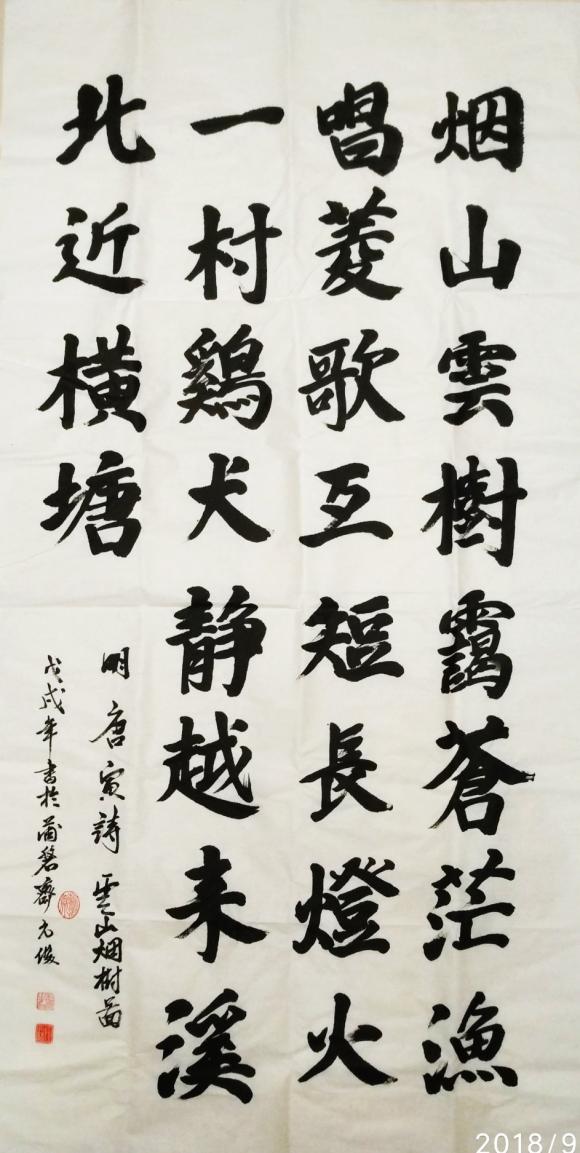 烟山雲樹靄蒼茫漁
唱菱歌互短長燈火
一村鷄犬静越来溪
北近横塘
明唐寅詩雲山烟樹畐
戊戌年書於蒲磐齋元俊
2018/9